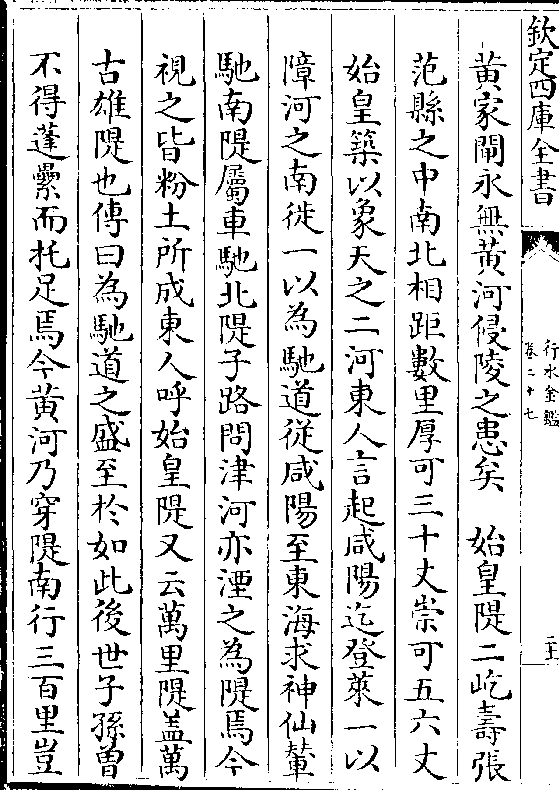 欽定四庫全書
行水金鑑
卷二十七
黃家閘永無黃河侵陵之患矣　始皇隄二屹壽張
范縣之中南北相距數里厚可三十丈崇可五六丈
始皇築以象天之二河東人言起咸陽迄登萊一以
障河之南徙一以為馳道從咸陽至東海求神仙輦
馳南隄屬車馳北隄子路問津河亦湮之為隄焉今
視之皆粉土所成東人呼始皇隄又云萬里隄葢萬
古雄隄也傳曰為馳道之盛至於如此後世子孫曽
不得蓬纍而托足焉今黃河乃穿隄南行三百里豈